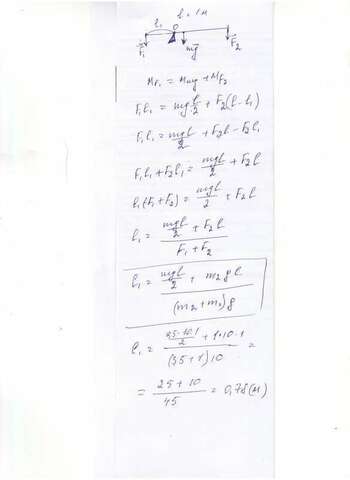 l₁ O l = 1м
F₁ mg F₂
M_F₁ = M_mg + M_F₂
F₁l₁ = mg l/2 + F₂(l - l₁)
F₁l₁ = mgl/2 + F₂l - F₂l₁
F₁l₁ + F₂l₁ = mgl/2 + F₂l
l₁(F₁ + F₂) = mgl/2 + F₂l
l₁ = (mgl/2 + F₂l)/(F₁ + F₂)
l₁ = (mgl/2 + m₂gl)/((m₂ + m₁)g)
= (3,5 + 1)10 =
= (25 + 10)/45 = 0,78(м)